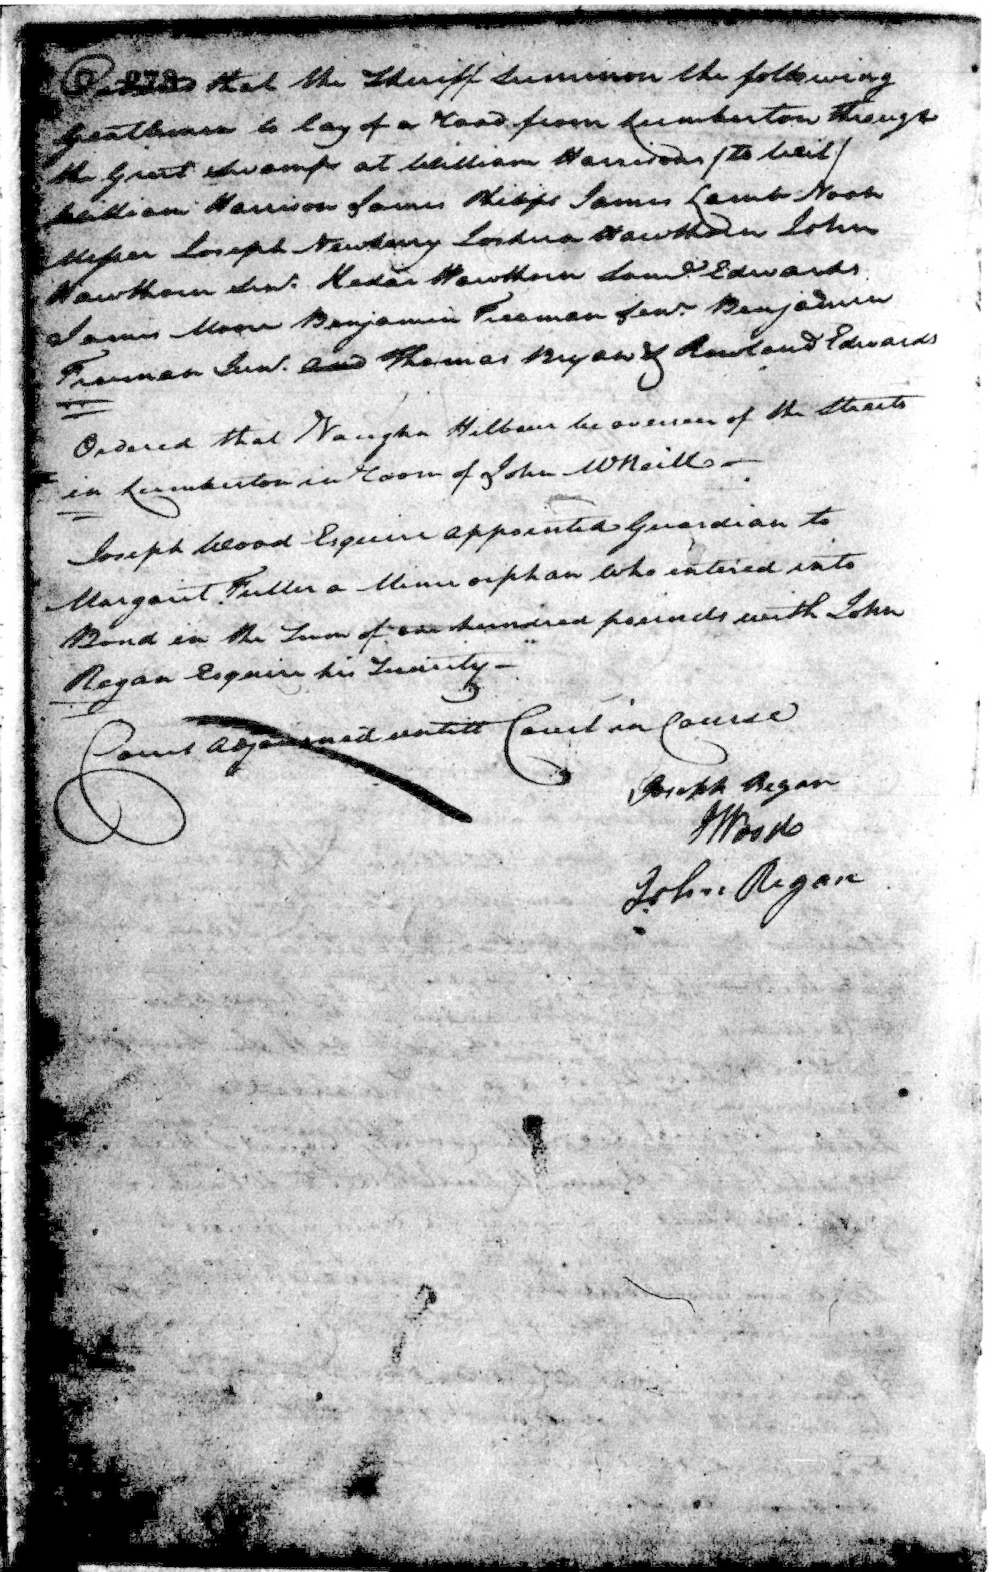 278
Ordered that the Sheriff Summon the following
Gentlemen to lay of a road from Lumberton through
the Great Swamp at William Harrisons (to Wit)
William Harrison James Phipps James Lamb Noah
Mercer Joseph Newberry Joshua Hawthorn John
Hawthorn Senr. Kedar Hawthorn Saml. Edwards
James Moore Benjamin Freeman Senr. Benjamin
Freeman Junr. and Thomas Bryan & Rowland Edwards
Ordered that Vaughn be overseer of the Streets
in Lumberton in room of John McNeill
Joseph Wood Esquire appointed Guardian to
Margaret Fuller a Minor orphan who entered into
Bond in the Sum of one hundred pounds with John
Regan Esquire his Security
Court Adjourned untill Court in Course
Joseph Regan
J Wood
John Regan